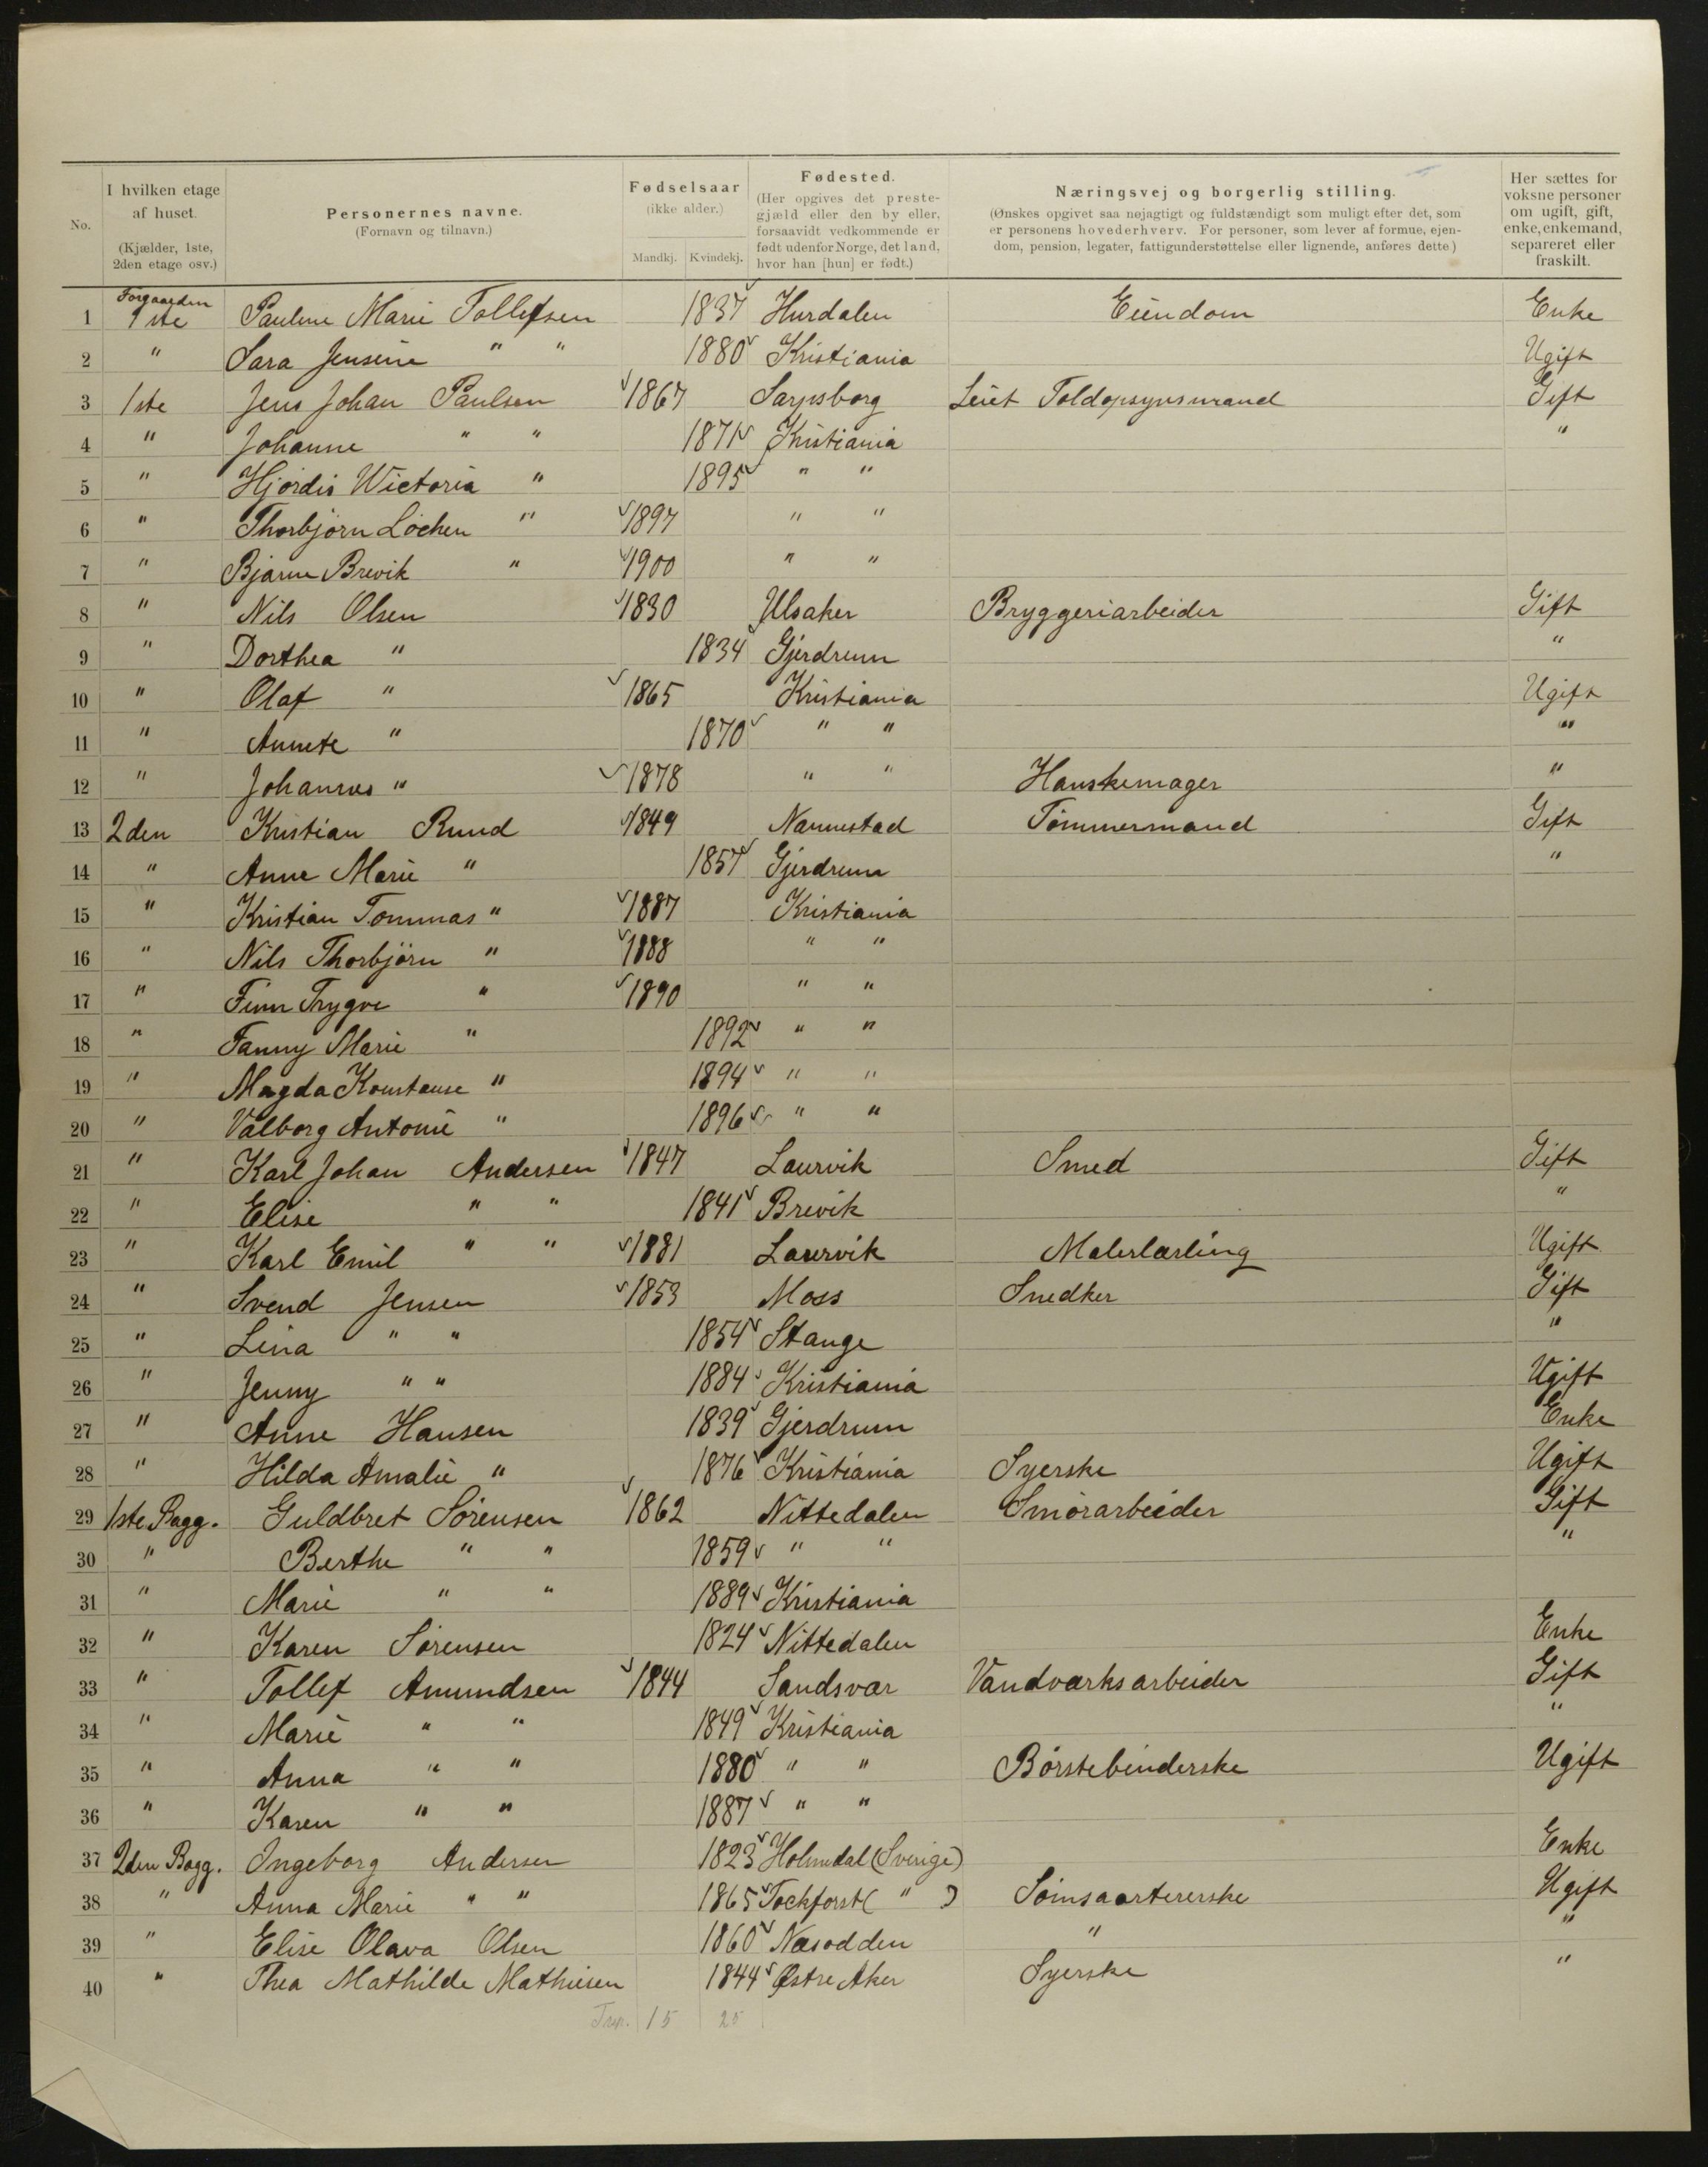 No.
I hvilken etage af huset. (Kjælder, 1ste, 2den etage osv.)
Personernes navne. (Fornavn og tilnavn.)
Fødselsaar (ikke alder.) Mandkj. Kvindekj.
Fødested. (Her opgives det prestegjæld eller den by eller, forsaavidt vedkommende er født udenfor Norge, det land, hvor han [hun] er født.)
Næringsvej og borgerlig stilling. (Ønskes opgivet saa nøjagtigt og fuldstændigt som muligt efter det, som er personens hovederhverv. For personer, som lever af formue, ejendom, pension, legater, fattigunderstøttelse eller lignende, anføres dette)
Her sættes for voksne personer om ugift, gift, enke, enkemand, separeret eller fraskilt.
Forgaarden
1 1ste Pauline Marie Tollefsen 1837 Hurdalen Eiendom Enke
2 " Sara Jensine " " 1880 Kristiania Ugift
3 1ste Jens Johan Paulsen 1867 Sarpsborg Toldopsynsmand Gift
4 " Johanne " " 1871 Kristiania "
5 " Hjørdis Wictoria " 1895 " "
6 " Thorbjørn Lochen " 1897 " "
7 " Bjarne Brevik " 1900 " "
8 " Nils Olsen 1830 Ulsaker Bryggeriarbeider Gift
9 " Dorthea " 1834 Gjerdrum "
10 " Olaf " 1865 Kristiania Ugift
11 " Annete " 1870 " " "
12 " Johannes " 1878 " " Hanskemager "
13 2den Kristian Rund 1849 Nannestad Tømmermand Gift
14 " Anne Marie " 1857 Gjerdrum "
15 " Kristian Tommas " 1887 Kristiania
16 " Nils Thorbjørn " 1888 " "
17 " Finn Trygve " 1890 " "
18 " Fanny Marie " 1892 " "
19 " Magda Konstanse " 1894 " "
20 " Valborg Antonie " 1896 " "
21 " Karl Johan Andersen 1847 Laurvik Smed Gift
22 " Elise " " 1841 Brevik "
23 " Karl Emil " " 1881 Laurvik Malerlærling Ugift
24 " Svend Jensen 1853 Moss Snedker Gift
25 " Lina " " 1854 Stange "
26 " Jenny " " 1884 Kristiania Ugift
27 " Anne Hansen 1839 Gjerdrum Enke
28 " Hilda Amalie " 1876 Kristiania Syerske Ugift
29 1ste Bagg. Guldbret Sørensen 1862 Nittedalen Smørarbeider Gift
30 " Berthe " " 1859 " " "
31 " Marie " " 1889 Kristiania
32 " Karen Sørensen 1824 Nittedalen Enke
33 " Tollef Amundsen 1844 Sandsvær Vandværksarbeider Gift
34 " Marie " " 1849 Kristiania "
35 " Anna " " 1880 " " Børstebinderske Ugift
36 " Karen " " 1887 " "
37 2den Bagg. Ingeborg Andersen 1823 Holmedal (Sverige) Enke
38 " Anna Marie " " 1865 Tockforst ( " ) Sømsaortererske Ugift
39 " Elise Olava Olsen 1860 Næsodden " "
40 " Thea Mathilde Mathiesen 1844 Østre Aker Syerske "
15 25